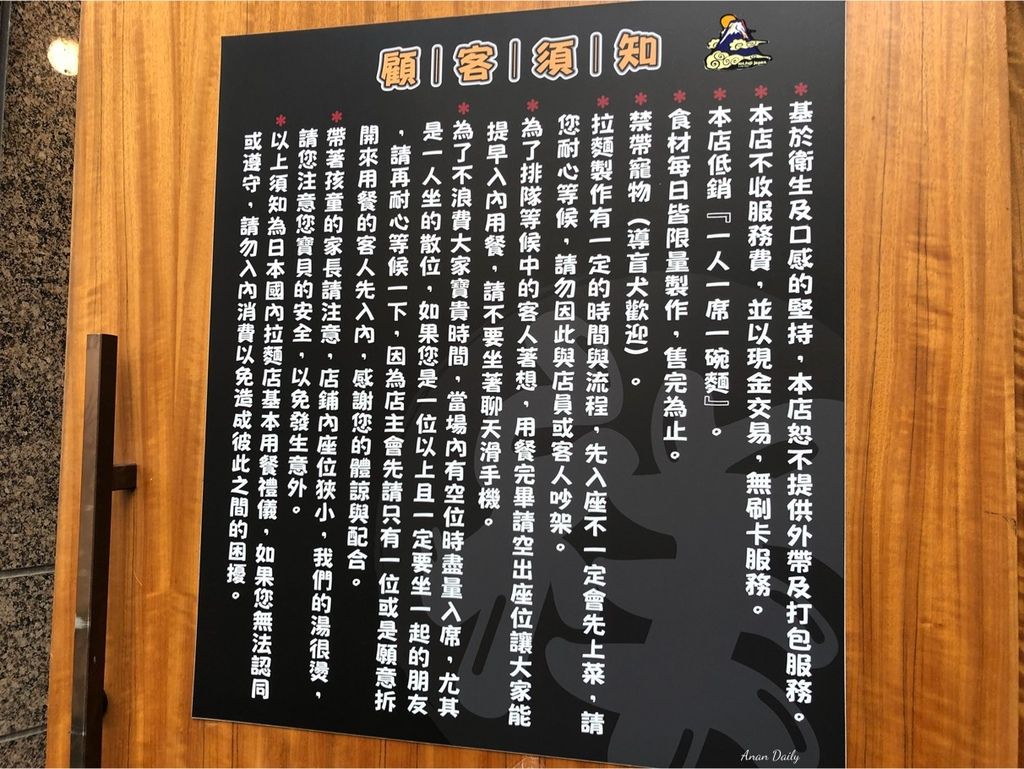 顧｜客｜須｜知
＊基於衛生及口感的堅持，本店恕不提供外帶及打包服務。
＊本店不收服務費，並以現金交易，無刷卡服務。
＊本店低銷『一人一席一碗麵』。
＊食材每日皆限量製作，售完為止。
＊禁帶寵物（導盲犬歡迎）。
＊拉麵製作有一定的時間與流程，先入座不一定會先上菜，請
您耐心等候，請勿因此與店員或客人吵架。
＊為了排隊等候中的客人著想，用餐完畢請空出座位讓大家能
提早入內用餐，請不要坐著聊天滑手機。
＊為了不浪費大家寶貴時間，當場內有空位時盡量入席，尤其
是一人坐的散位，如果您是一位以上且一定要坐一起的朋友
，請再耐心等候一下，因為店主會先請只有一位或是願意拆
開來用餐的客人先入內，感謝您的體諒與配合。
＊帶著孩童的家長請注意，店鋪內座位狹小，我們的湯很燙，
請您注意您寶貝的安全，以免發生意外。
＊以上須知為日本國內拉麵店基本用餐禮儀，如果您無法認同
或遵守，請勿入內消費以免造成彼此之間的困擾。
Anan Daily